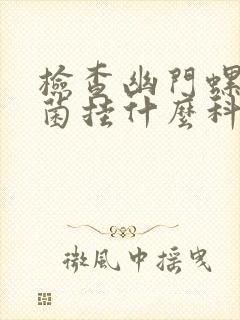 檢查幽門螺
菌挂什麼科
微風中搖曳